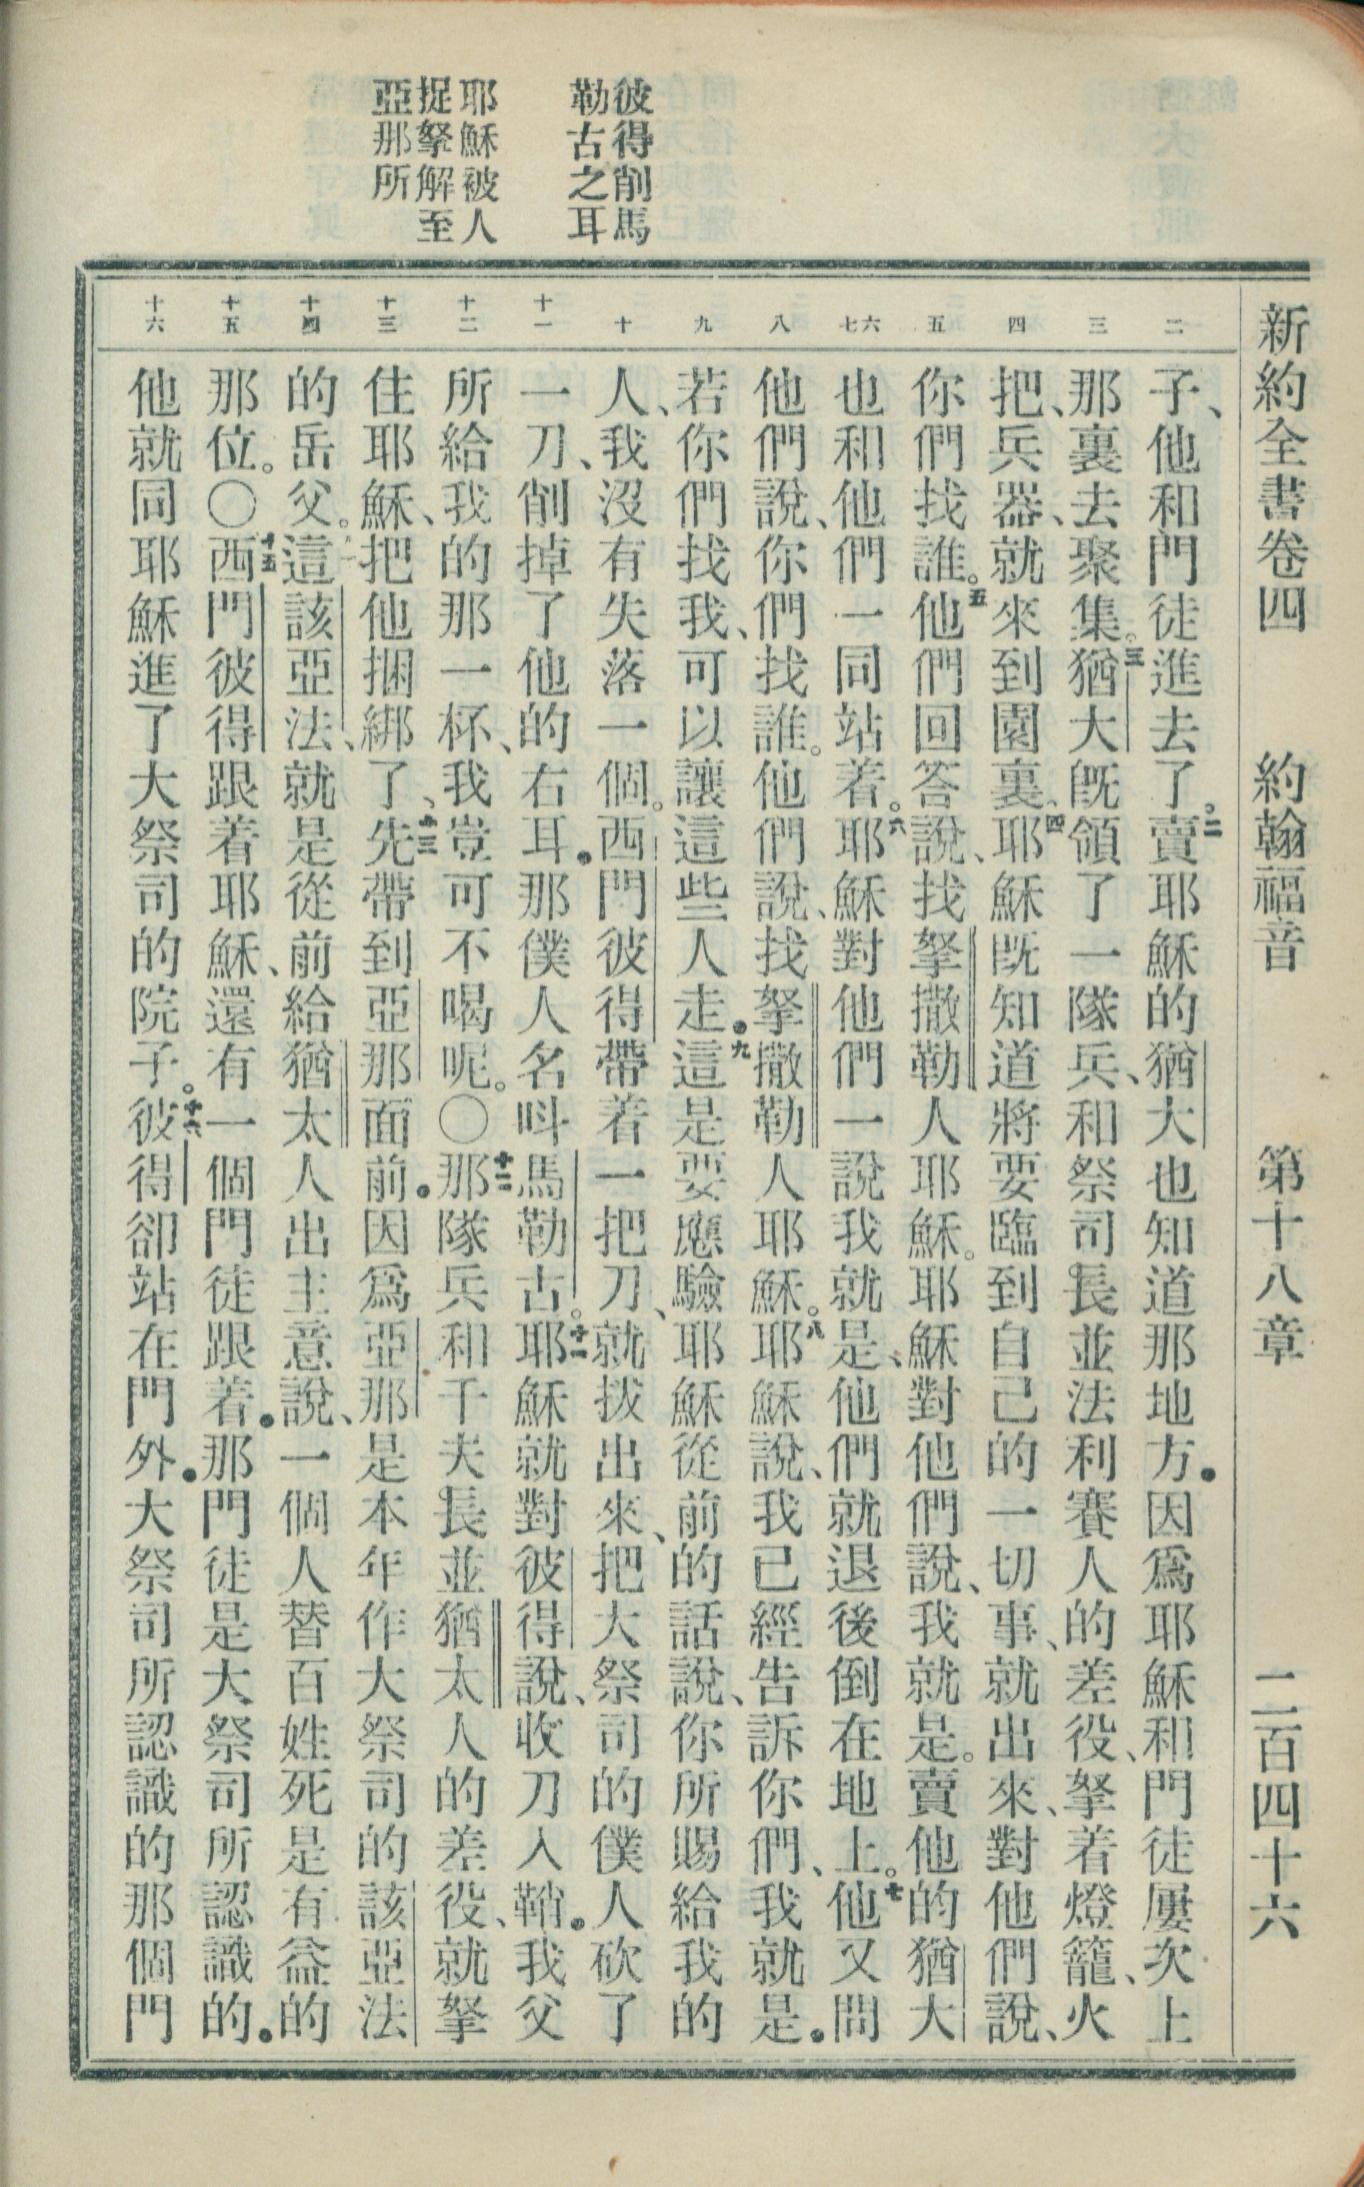 新約全書卷四 約翰福音 第十八章 二百四十六
彼得削馬
勒古之耳
耶穌被人
捉拏解至
亞那所
二
三
四
五
六七
八
九
十
十一
十二
十三
十四
十五
十六
子、他和門徒進去了。二賣耶穌的猶大也知道那地方．因爲耶穌和門徒屢次上
那裏去聚集。三猶大旣領了一隊兵、和祭司長並法利賽人的差役、拏着燈籠、火
把、兵器、就來到園裏。四耶穌旣知道將要臨到自己的一切事、就出來、對他們說、
你們找誰。五他們回答說、找拏撒勒人耶穌。耶穌對他們說、我就是。賣他的猶大
也和他們一同站着。六耶穌對他們一說我就是、他們就退後倒在地上。七他又問
他們說、你們找誰。他們說、找拏撒勒人耶穌。八耶穌說、我已經告訴你們、我就是．
若你們找我、可以讓這些人走．九這是要應驗耶穌從前的話說、你所賜給我的
人、我沒有失落一個。西門彼得帶着一把刀、就拔出來、把大祭司的僕人砍了
一刀、削掉了他的右耳．那僕人名呌馬勒古。十一耶穌就對彼得說、收刀入鞘．我父
所給我的那一杯、我豈可不喝呢。〇十二那隊兵和千夫長並猶太人的差役、就拏
住耶穌、把他捆綁了、十三先帶到亞那面前．因爲亞那是本年作大祭司的該亞法
的岳父。這該亞法、就是從前給猶太人出主意說、一個人替百姓死是有益的
那位。〇十五西門彼得跟着耶穌、還有一個門徒跟着．那門徒是大祭司所認識的．
他就同耶穌進了大祭司的院子。十六彼得卻站在門外．大祭司所認識的那個門